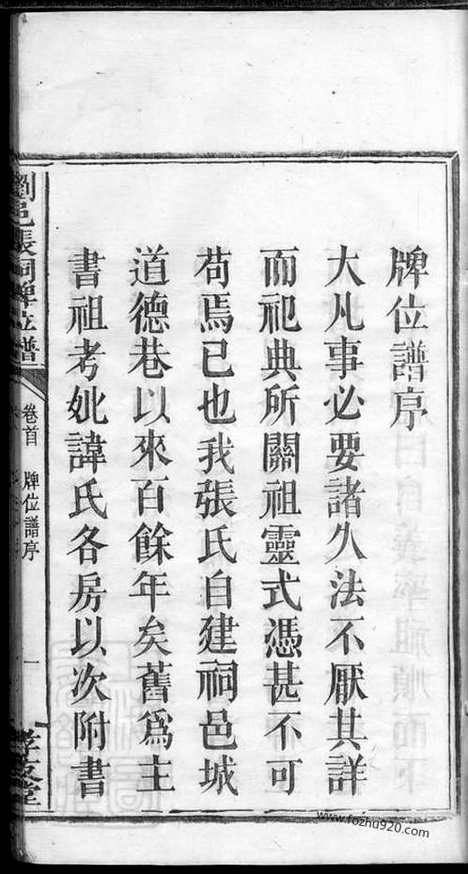 牌位譜序
大凡事必要諸久法不厭其詳
而祀典所關祖靈式憑甚不可
苟焉已也我張氏自建祠邑城
道德巷以來百餘年矣舊為主
書祖考妣諱氏各房以次附書
劉邑張祠牌位譜
卷首
牌位譜序
一
孝友堂
www.fozhu920.com